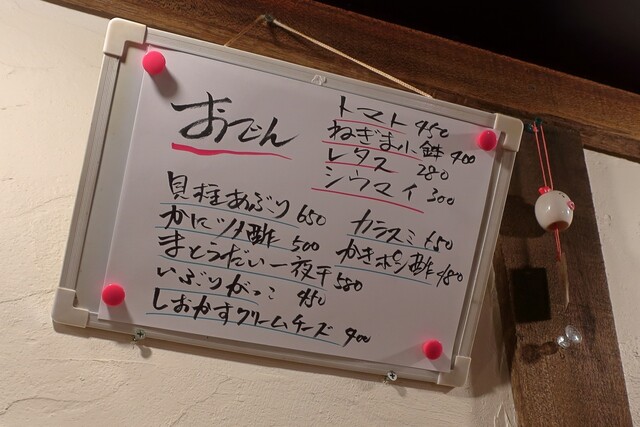 おでん
トマト 450
ねぎま小鉢 400
レタス 280
シウマイ 300
貝柱あぶり 650
かに酢 500
まとうだい一夜干 580
いぶりがっこ 450
しおかすクリームチーズ 400
カラスミ 650
かきポン酢 480